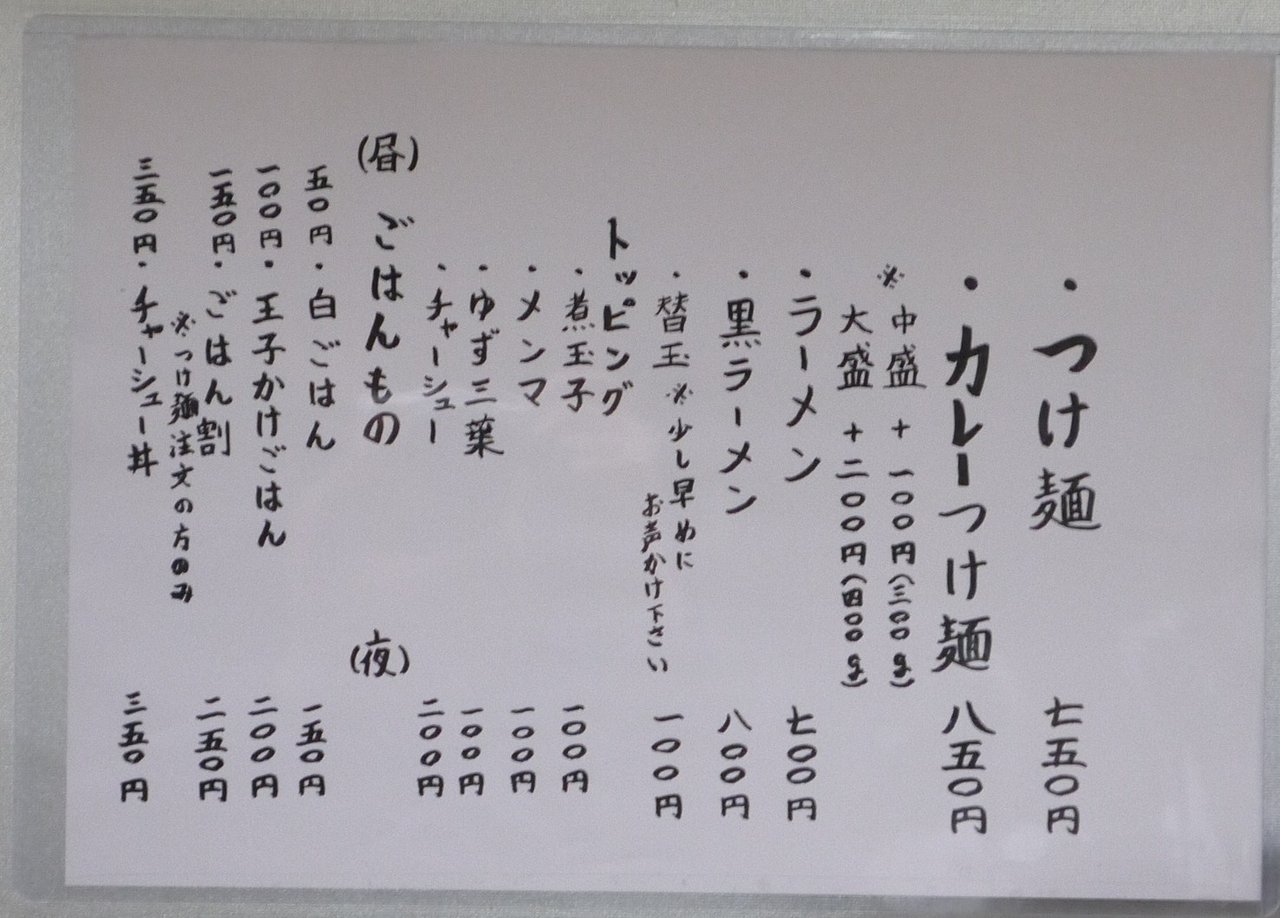 ・つけ麺 七五〇円
・カレーつけ麺 八五〇円
※中盛 + 一〇〇円(三〇〇g)
大盛 + 二〇〇円(四〇〇g)
・ラーメン 七〇〇円
・黒ラーメン 八〇〇円
・替玉 ※少し早めに
お声かけ下さい 一〇〇円
トッピング
・煮玉子 一〇〇円
・メンマ 一〇〇円
・ゆず三葉 一〇〇円
・チャーシュー 二〇〇円
(昼) ごはんもの (夜)
五〇円・白ごはん 一五〇円
一〇〇円・玉子かけごはん 二〇〇円
一五〇円・ごはん割 二五〇円
※つけ麺注文の方のみ
三五〇円・チャーシュー丼 三五〇円